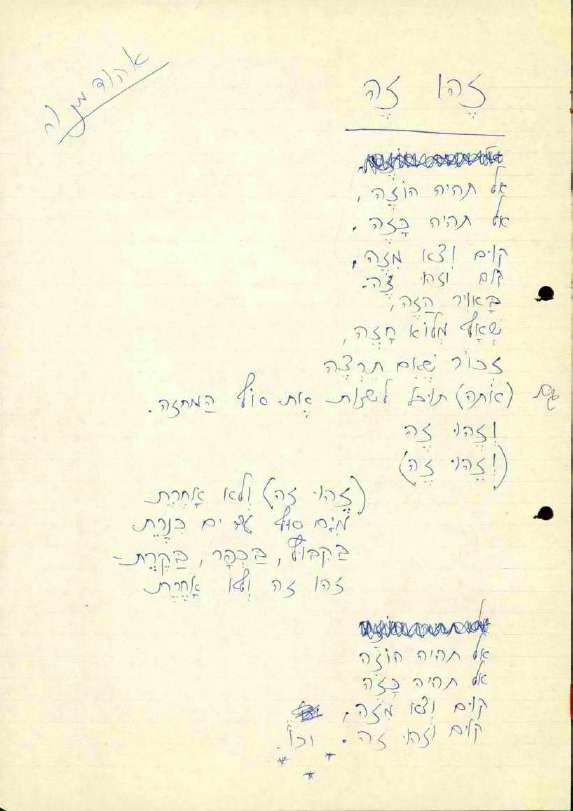 אהוד מנור
זֶהוּ זֶה
אל תהיה הוֹזֶה,
אל תהיה כָּזֶה.
קום וְצא מִזֶה,
קום וזהו זֶה.
בָּאויר הַזֶה,
שְאַף מְלוֹא חָזֶה,
זכור שֶאִם תרְצֶה
גם (אתה) תוכל לשנות אֶת סוף הַמחזה.
וְזֶהוּ זֶה
(וְזֶהוּ זֶה)
(זֶהוּ זה) וְלא אַחֶרֶת
מִיַם סוּף עד ים כִּנֶרֶת
בַּקִבּוּץ, בַּכְּפָר, בַּקֶרֶת
זהו זה ולא אַחֶרֶת
אל תהיה הוֹזֶה
אל תהיה כָּזֶה
קום וְצא מִזֶה,
קום וְזהו זה. וכו'.